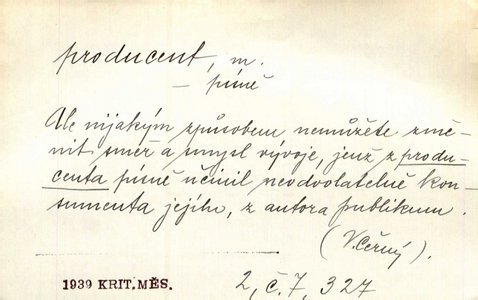 producent, m.
— písně
Ale nijakým způsobem nemůžete změ-
nit směr a smysl vývoje, jenž z produ-
centa písně učinil neodvolatelně kon-
sumenta jejího, z autora publikum.
(V. Černý).
1939 KRIT. MĚS.
2, č. 7, 327